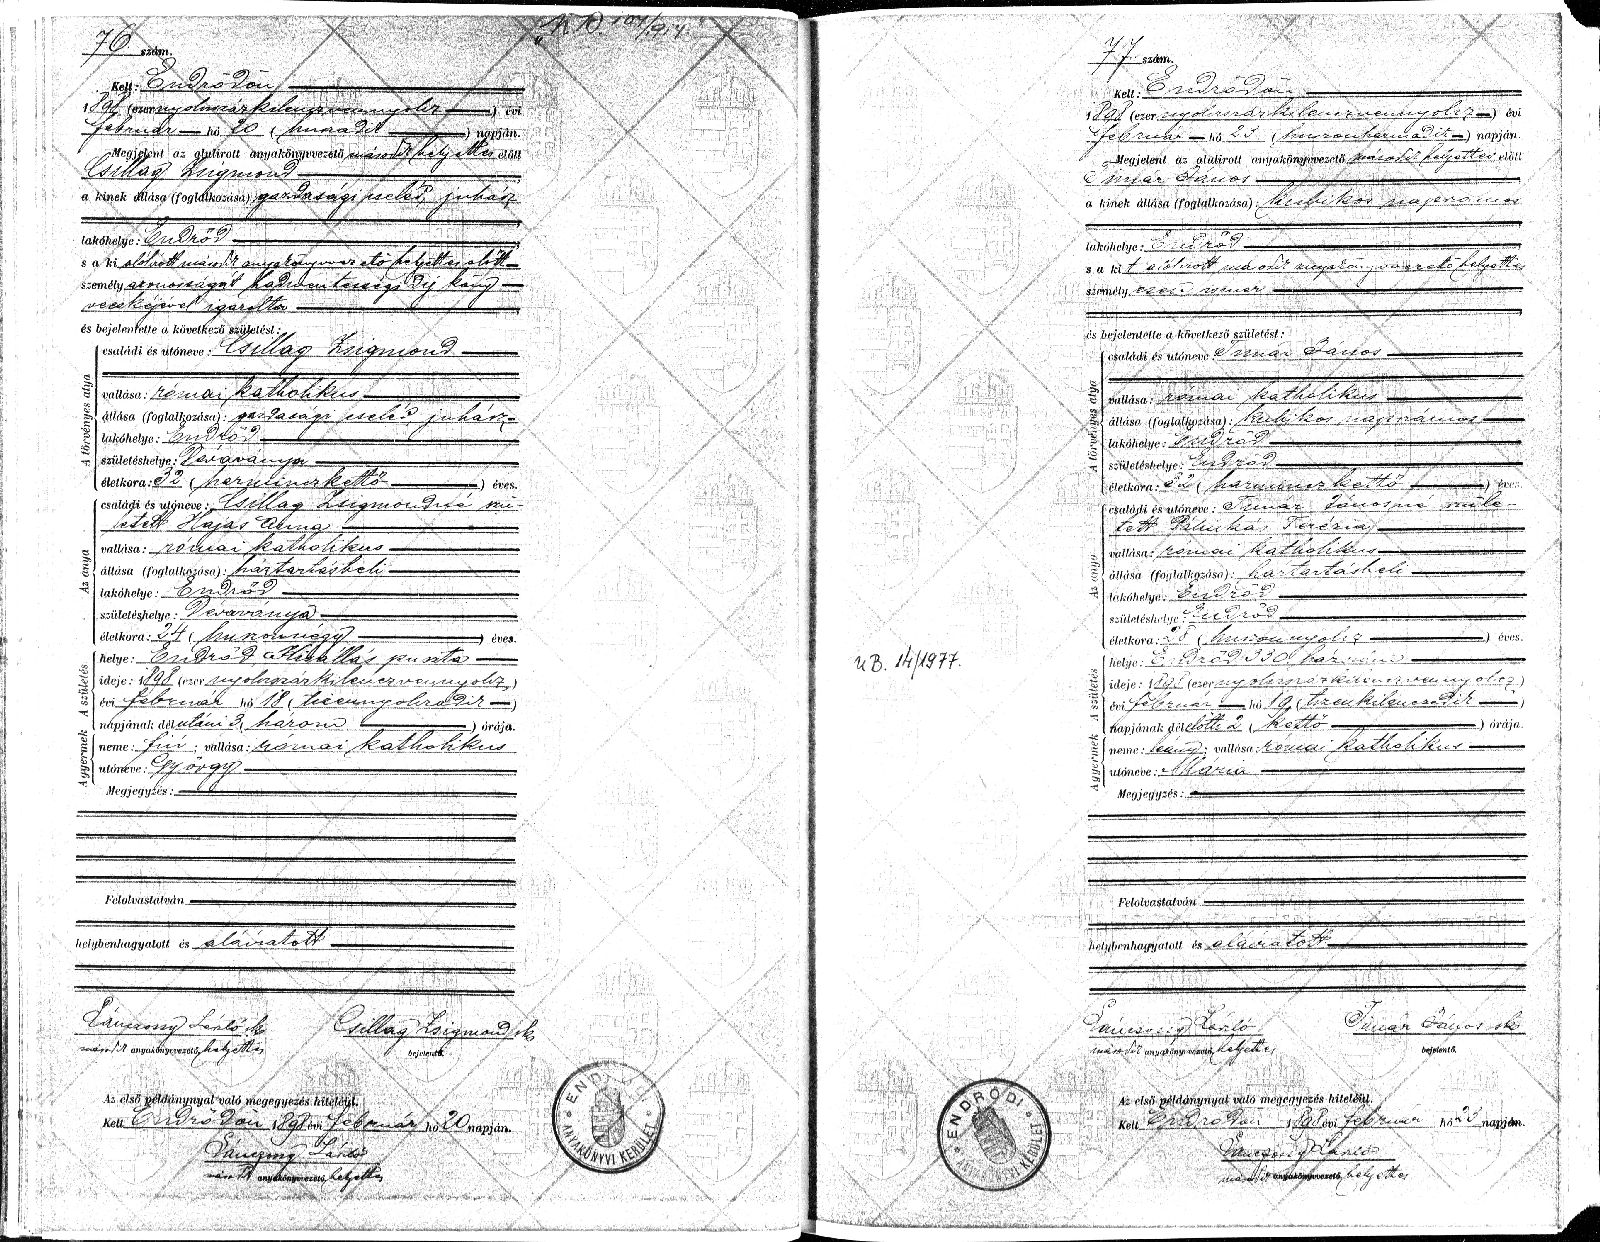 76 szám.
Kelt: Endrődön
1898 (ezernyolcszázkilenczvennyolcz) évi
február hó 20 (huszadik) napján.
Megjelent az alulirott anyakönyvvezető második helyettes előtt
Csillag Zsigmond
a kinek állása (foglalkozása): gazdasági cseléd, juhász
lakóhelye: Endrőd
s a ki alólirott második anyakönyvvezető helyettes előtt
személyazonosságát hadmentességi díj köny-
vecskéjével igazolta
és bejelentette a következő születést:
A törvényes atya
családi és utóneve: Csillag Zsigmond
vallása: római katholikus
állása (foglalkozása): gazdasági cseléd, juhász
lakóhelye: Endrőd
születéshelye: Dévaványa
életkora: 32 (harminczkettő) éves.
Az anya
családi és utóneve: Csillag Zsigmondné szü-
letett Hajas Anna
vallása: római katholikus
állása (foglalkozása): háztartásbeli
lakóhelye: Endrőd
születéshelye: Dévaványa
életkora: 24 (huszonnégy) éves.
A gyermek A születés
helye: Endrőd puszta
ideje: 1898 (ezernyolcszázkilenczvennyolcz)
évi február hó 18 (tizennyolczadik)
napjának délutáni 3 (három) órája.
neme: fiú; vallása: római katholikus
utóneve: György
Megjegyzés:
Felolvastatván
helybenhagyatott és aláiratott
László sk
második anyakönyvvezető helyettes
Csillag Zsigmond sk
bejelentő.
Az első példánynyal való megegyezés hiteléül.
Kelt Endrődön 1898 évi február hó 20 napján.
László
második anyakönyvvezető helyettes
ENDRŐDI
ANYAKÖNYVI KERÜLET
77 szám.
Kelt: Endrődön
1898 (ezernyolcszázkilenczvennyolcz) évi
február hó 23 (huszonharmadik) napján.
Megjelent az alulirott anyakönyvvezető második helyettes előtt
Timár János
a kinek állása (foglalkozása): kubikos napszámos
lakóhelye: Endrőd
s a kit alólirott második anyakönyvvezető helyettes
személyesen ismer
és bejelentette a következő születést:
A törvényes atya
családi és utóneve Timár János
vallása: római katholikus
állása (foglalkozása): kubikos napszámos
lakóhelye: Endrőd
születéshelye: Endrőd
életkora: 32 (harminczkettő) éves.
Az anya
családi és utóneve: Timár Jánosné szüle-
tett Teréz
vallása: római katholikus
állása (foglalkozása): háztartásbeli
lakóhelye: Endrőd
születéshelye: Endrőd
életkora: 28 (huszonnyolcz) éves.
A gyermek A születés
helye: Endrőd 330 házszám
ideje: 1898 (ezernyolcszázkilenczvennyolcz)
évi február hó 19 (tizenkilenczedik)
napjának délelőtti 2 (kettő) órája.
neme: leány; vallása: római katholikus
utóneve: Mária
Megjegyzés:
Felolvastatván
helybenhagyatott és aláiratott
László
második anyakönyvvezető helyettes
Timár János sk
bejelentő.
Az első példánynyal való megegyezés hiteléül.
Kelt Endrődön 1898 évi február hó 23 napján.
László
második anyakönyvvezető helyettes
UB. 14/1977.
ENDRŐDI
ANYAKÖNYVI KERÜLET